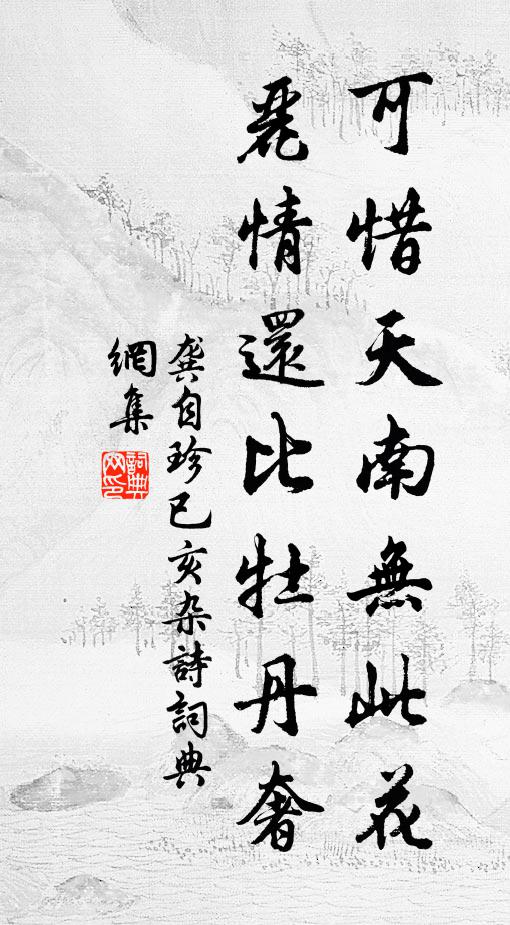 可惜天南無此花
麗情還比牡丹奢
龔自珍已亥杂詩詞典
網集
詞典網印